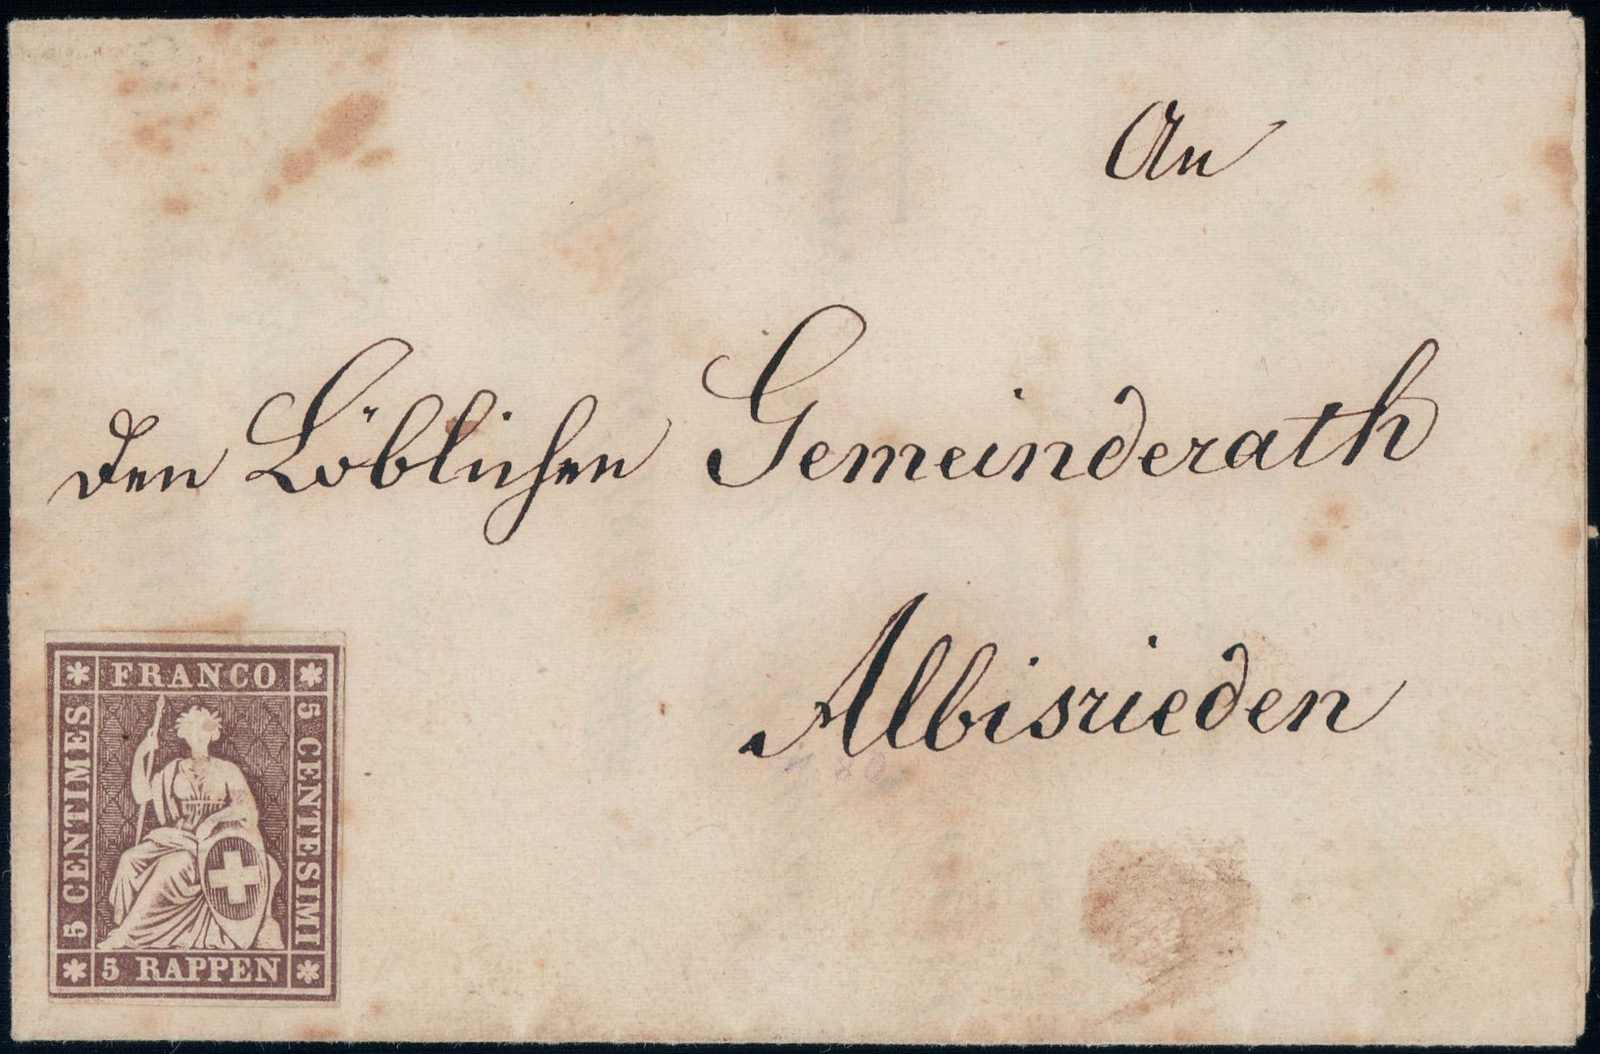 An
den Löblichen Gemeinderath
Albisrieden
FRANCO
5 CENTIMES
5 CENTESIMI
5 RAPPEN